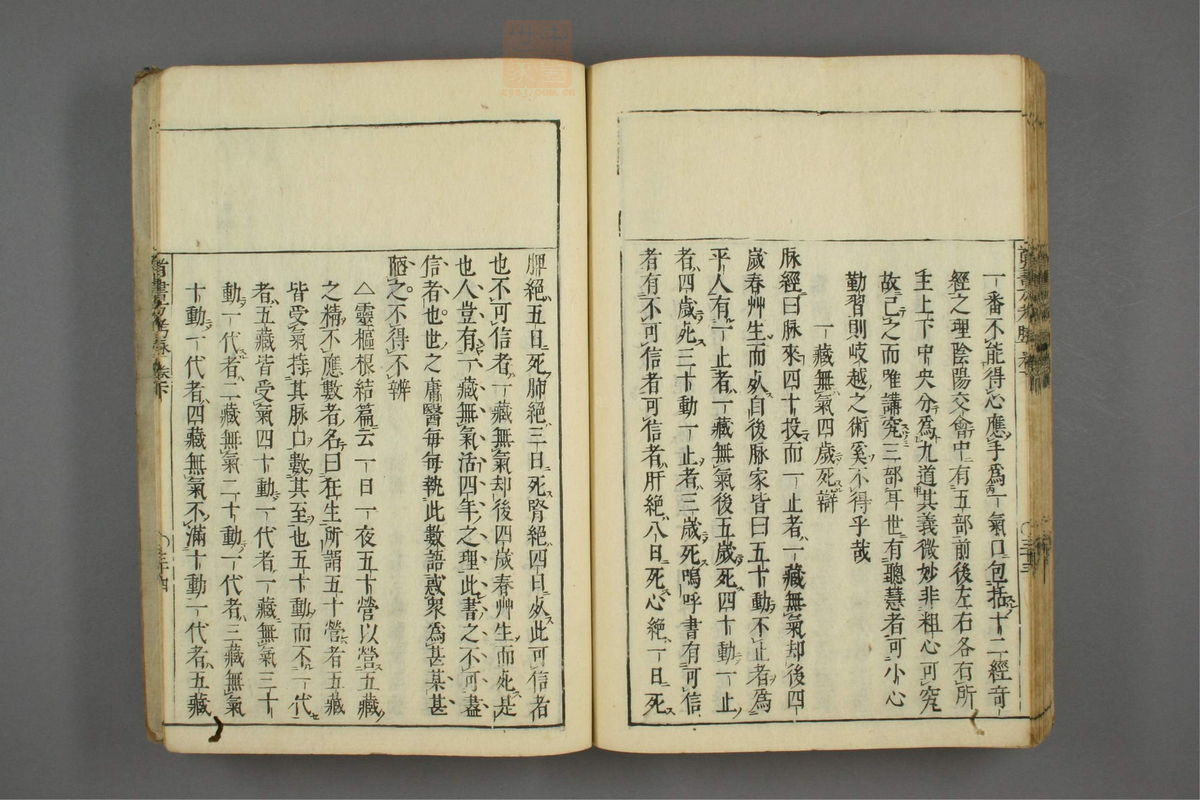 一番不能得心應手爲一氣口包括十二經竒
經之理陰陽交會中有五部前後左右各有所
主上下中央分爲九道其義微妙非粗心可究
故已之而唯講究三部耳世有聽慧者可小心
勤習則岐越之術奚不得乎哉
一藏無氣四歲死辯
脉經曰脉來四十投而一止者一藏無氣却後四
歲春艸生而死自後脉家皆曰五十動不止者爲
平人有一止者一藏無氣後五歲死四十動一止
者四歲死三十動一止者三歲死嗚呼書有可信
者有不可信者可信者肝絕八日死心絕一日死
脾絕五日死肺絕三日死腎絕四日死此可信者
也不可信者一藏無氣却後四歲春艸生而死是
也人豈有一藏無氣活四年之理此書之不可盡
信者也世之庸醫每每執此數語惑衆爲甚某甚
陋之不得不辨
△靈樞根結篇云一日一夜五十營以營五藏
之精不應數者名曰狂生所謂五十營者五藏
皆受氣持其脉口數其至也五十動而不一代
者五藏皆受氣四十動一代者一藏無氣三十
動一代者二藏無氣二十動一代者三藏無氣
十動一代者四藏無氣不滿十動一代者五藏